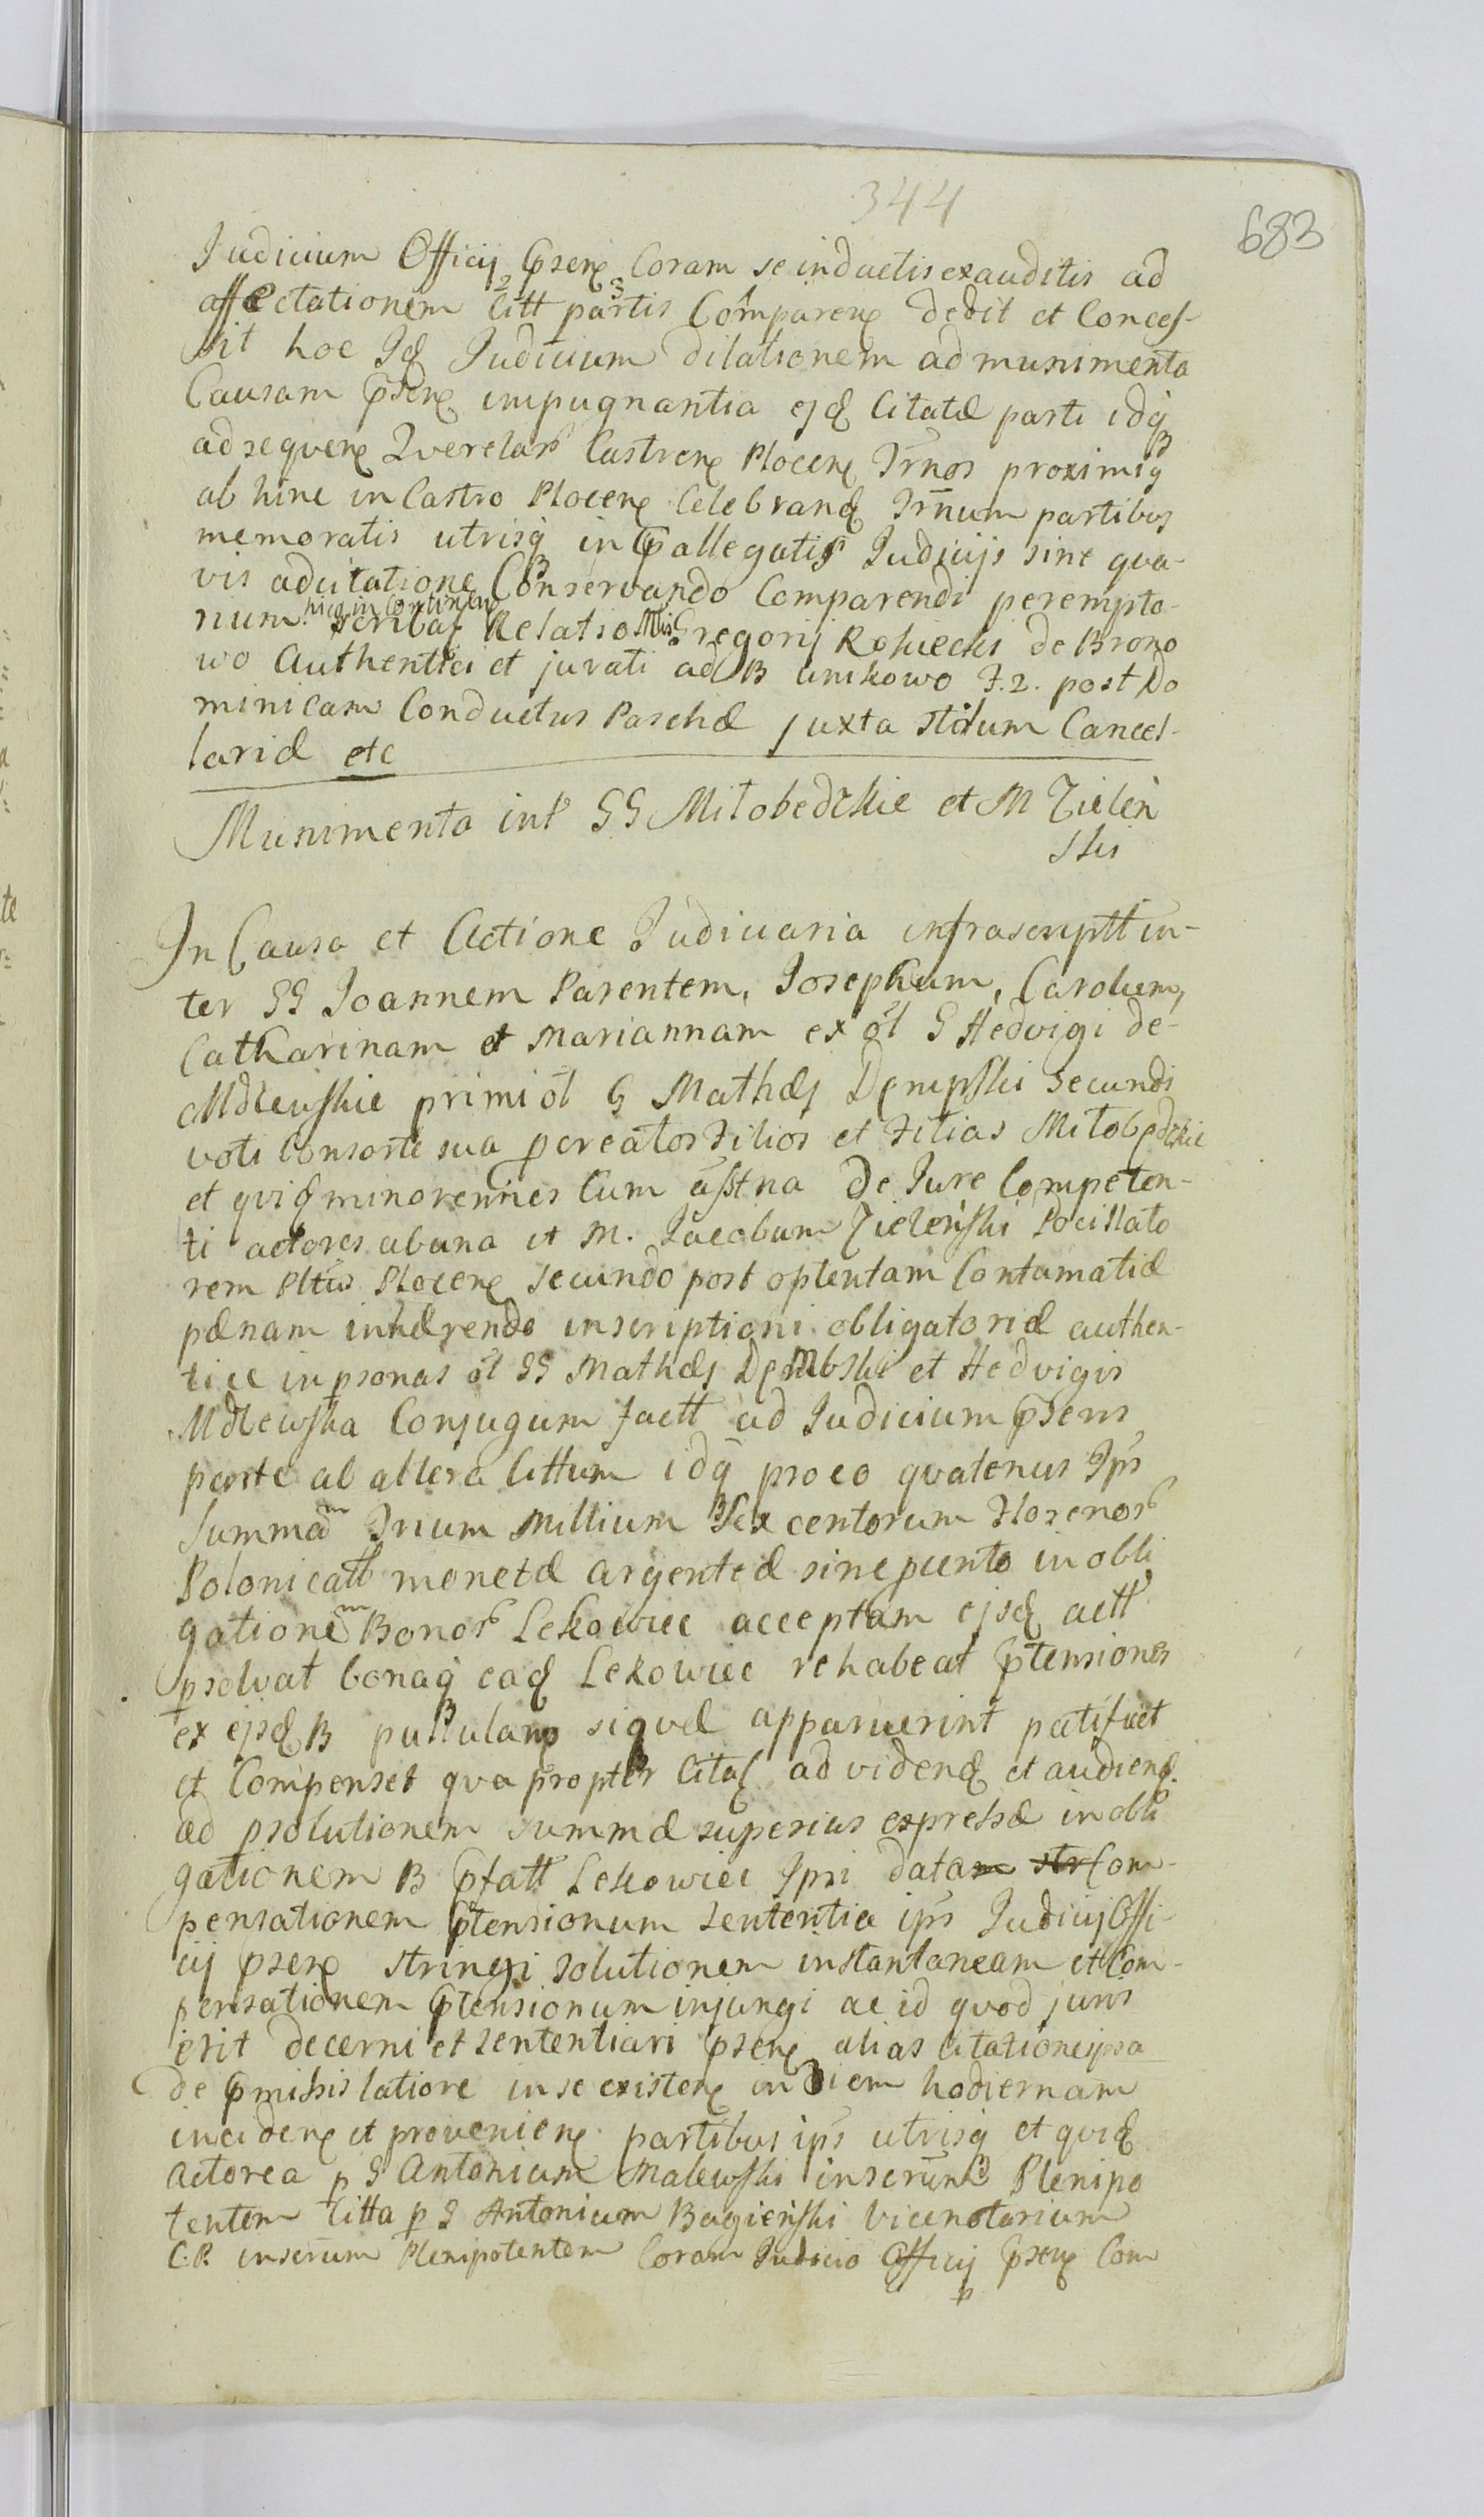 344
683
Judicium Officij pseñ Coram se inductis exauditis ad
affectationem Citt partis Compareñ dedit et Conces-
sit hoc Jd Judicium dilationem ad munimenta
Causam pseñ impugnantia ejd Citatæ parti idq
ad sequeñ Querelar Castreñ Ploceñ Trnos proximiq
ab hinc in Castro Ploceñ Celebrand Trnum partibus
memoratis utrisq in pallegatis Judicijs sine qva-
vis adcitatione Conservando Comparendi perempto-
rium hicq in Continen scribat Relatio Mis Gregorij Rokicki de Brono
wo Authentici et jurati ad B unikowo F. 2. post Do
minicam Conductus Paschæ juxta stilum Cancel-
lariæ etc
Munimenta int GG Miłobedzkie et M Zieleń
ski
In Causa et Actione Judiciaria infrascriptt in-
ter GG Joannem Parentem, Josephum, Carolum,
Catharinam et Mariannam ex ol G Hedvigi de-
Mdzewskie primi ol G Mathæj Dempski secundi
voti Consorte sua pcreatos Filios et Filias Miłobędzkie
et qvid minorennes Cum asstna de Jure Competen-
ti actores ab una et M. Jacobum Zieleński Pocillato
rem Pltus Ploceñ secundo post optentam Contumatiæ
pænam inhærendo inscriptioni obligatoriæ authen-
ticæ in psonas ol GG Mathæj Dembski et Hedvigis
Mdzewska Conjugum factt ad Judicium psens
parte ab altera Cittum idq pro eo qvatenus Jps
summam Trium Millium Sexcentorum Florenor
Polonicatt monetæ argenteæ sine puncto in obli
gationem Bonor Lekowiec acceptam ejsd actt
psolvat bonaq ead Lekowiec rehabeat ptensiones
ex ejsd B pullulañ siqvæ apparuerint patificet
et Compenset qva propter Citat ad vidend et audiend
ad psolutionem summæ superius expressæ in obli
gationem B pfatt Lekowiec Jpsi datam str Com-
pensationem ptensionum sententia ips Judicij Offi-
cij pseñ stringi solutionem instantaneam et Com-
pensationem ptensionum injungi ac id qvod juris
erit decerni et sententiari pseñ alias Citatione ipsa
de pmissis latiore in se existeñ in diem hodiernam
incideñ et provenieñ partibus ips utrisq et qvid
Actorea p G Antonium Malewski inserum Plenipo
tentem Citta p G Antonium Bagieński Vicenotarium
C. P. inserum Plenipotentem Coram Judicio Officij pseñ Com
p